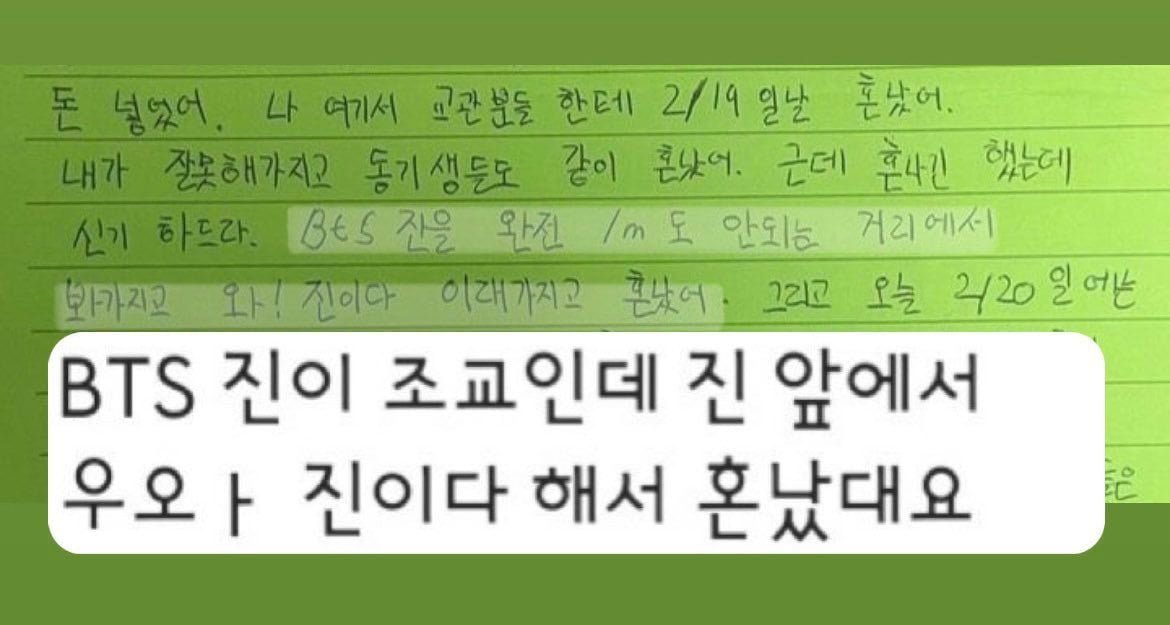 돈 넣었어. 나 여기서 교관분들 한테 2/19 일날 혼났어.
내가 잘못해가지고 동기생들도 같이 혼났어. 근데 혼나긴 했는데
신기 하드라. BtS 진을 완전 1m도 안되는 거리에서
봐가지고 와! 진이다 이래가지고 혼났어. 그리고 오늘 2/20일에는
BTS 진이 조교인데 진 앞에서
우오ㅏ 진이다 해서 혼났대요